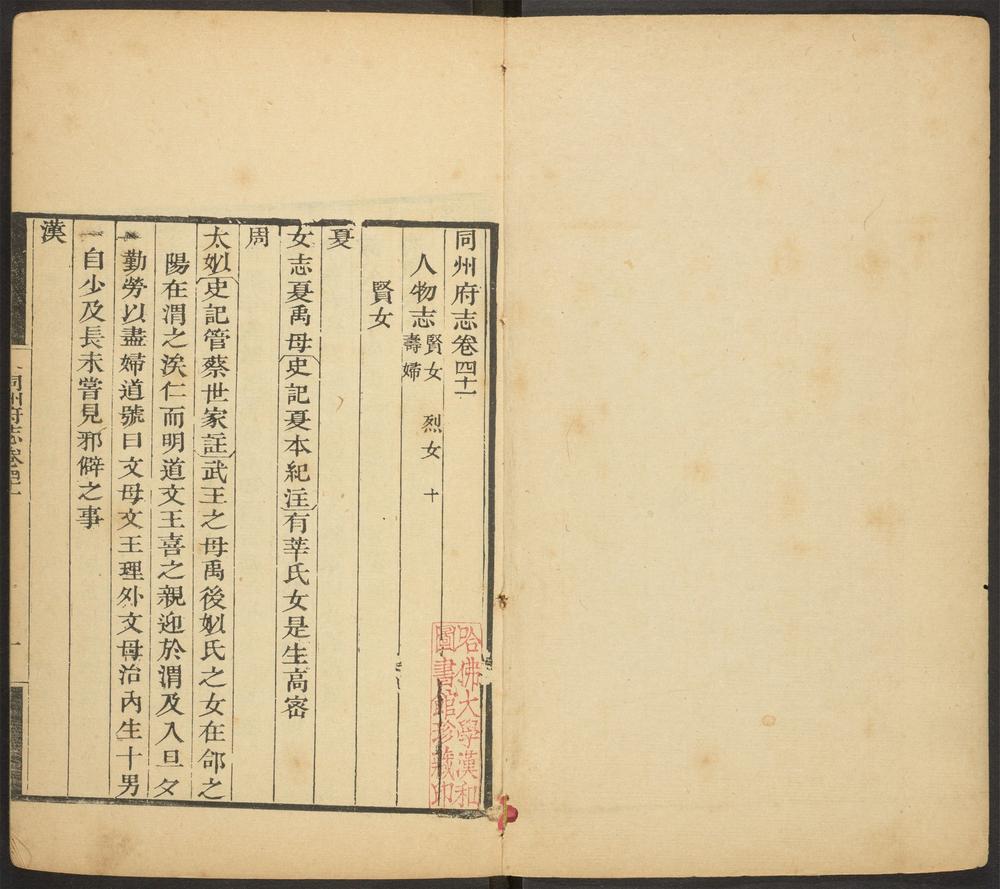 同州府志卷四十一
人物志 賢女 烈女 十
壽婦
賢女
夏
女志夏禹母史記夏本紀注有莘氏女是生高密
周
太姒史記管蔡世家註武王之母禹後姒氏之女在郃之
陽在渭之涘仁而明道文王喜之親迎於渭及入旦夕
勤勞以盡婦道號曰文母文王理外文母治內生十男
一自少及長未嘗見邪僻之事
漢
同州府志卷四十一
一
哈佛大學漢和
圖書館珍藏印